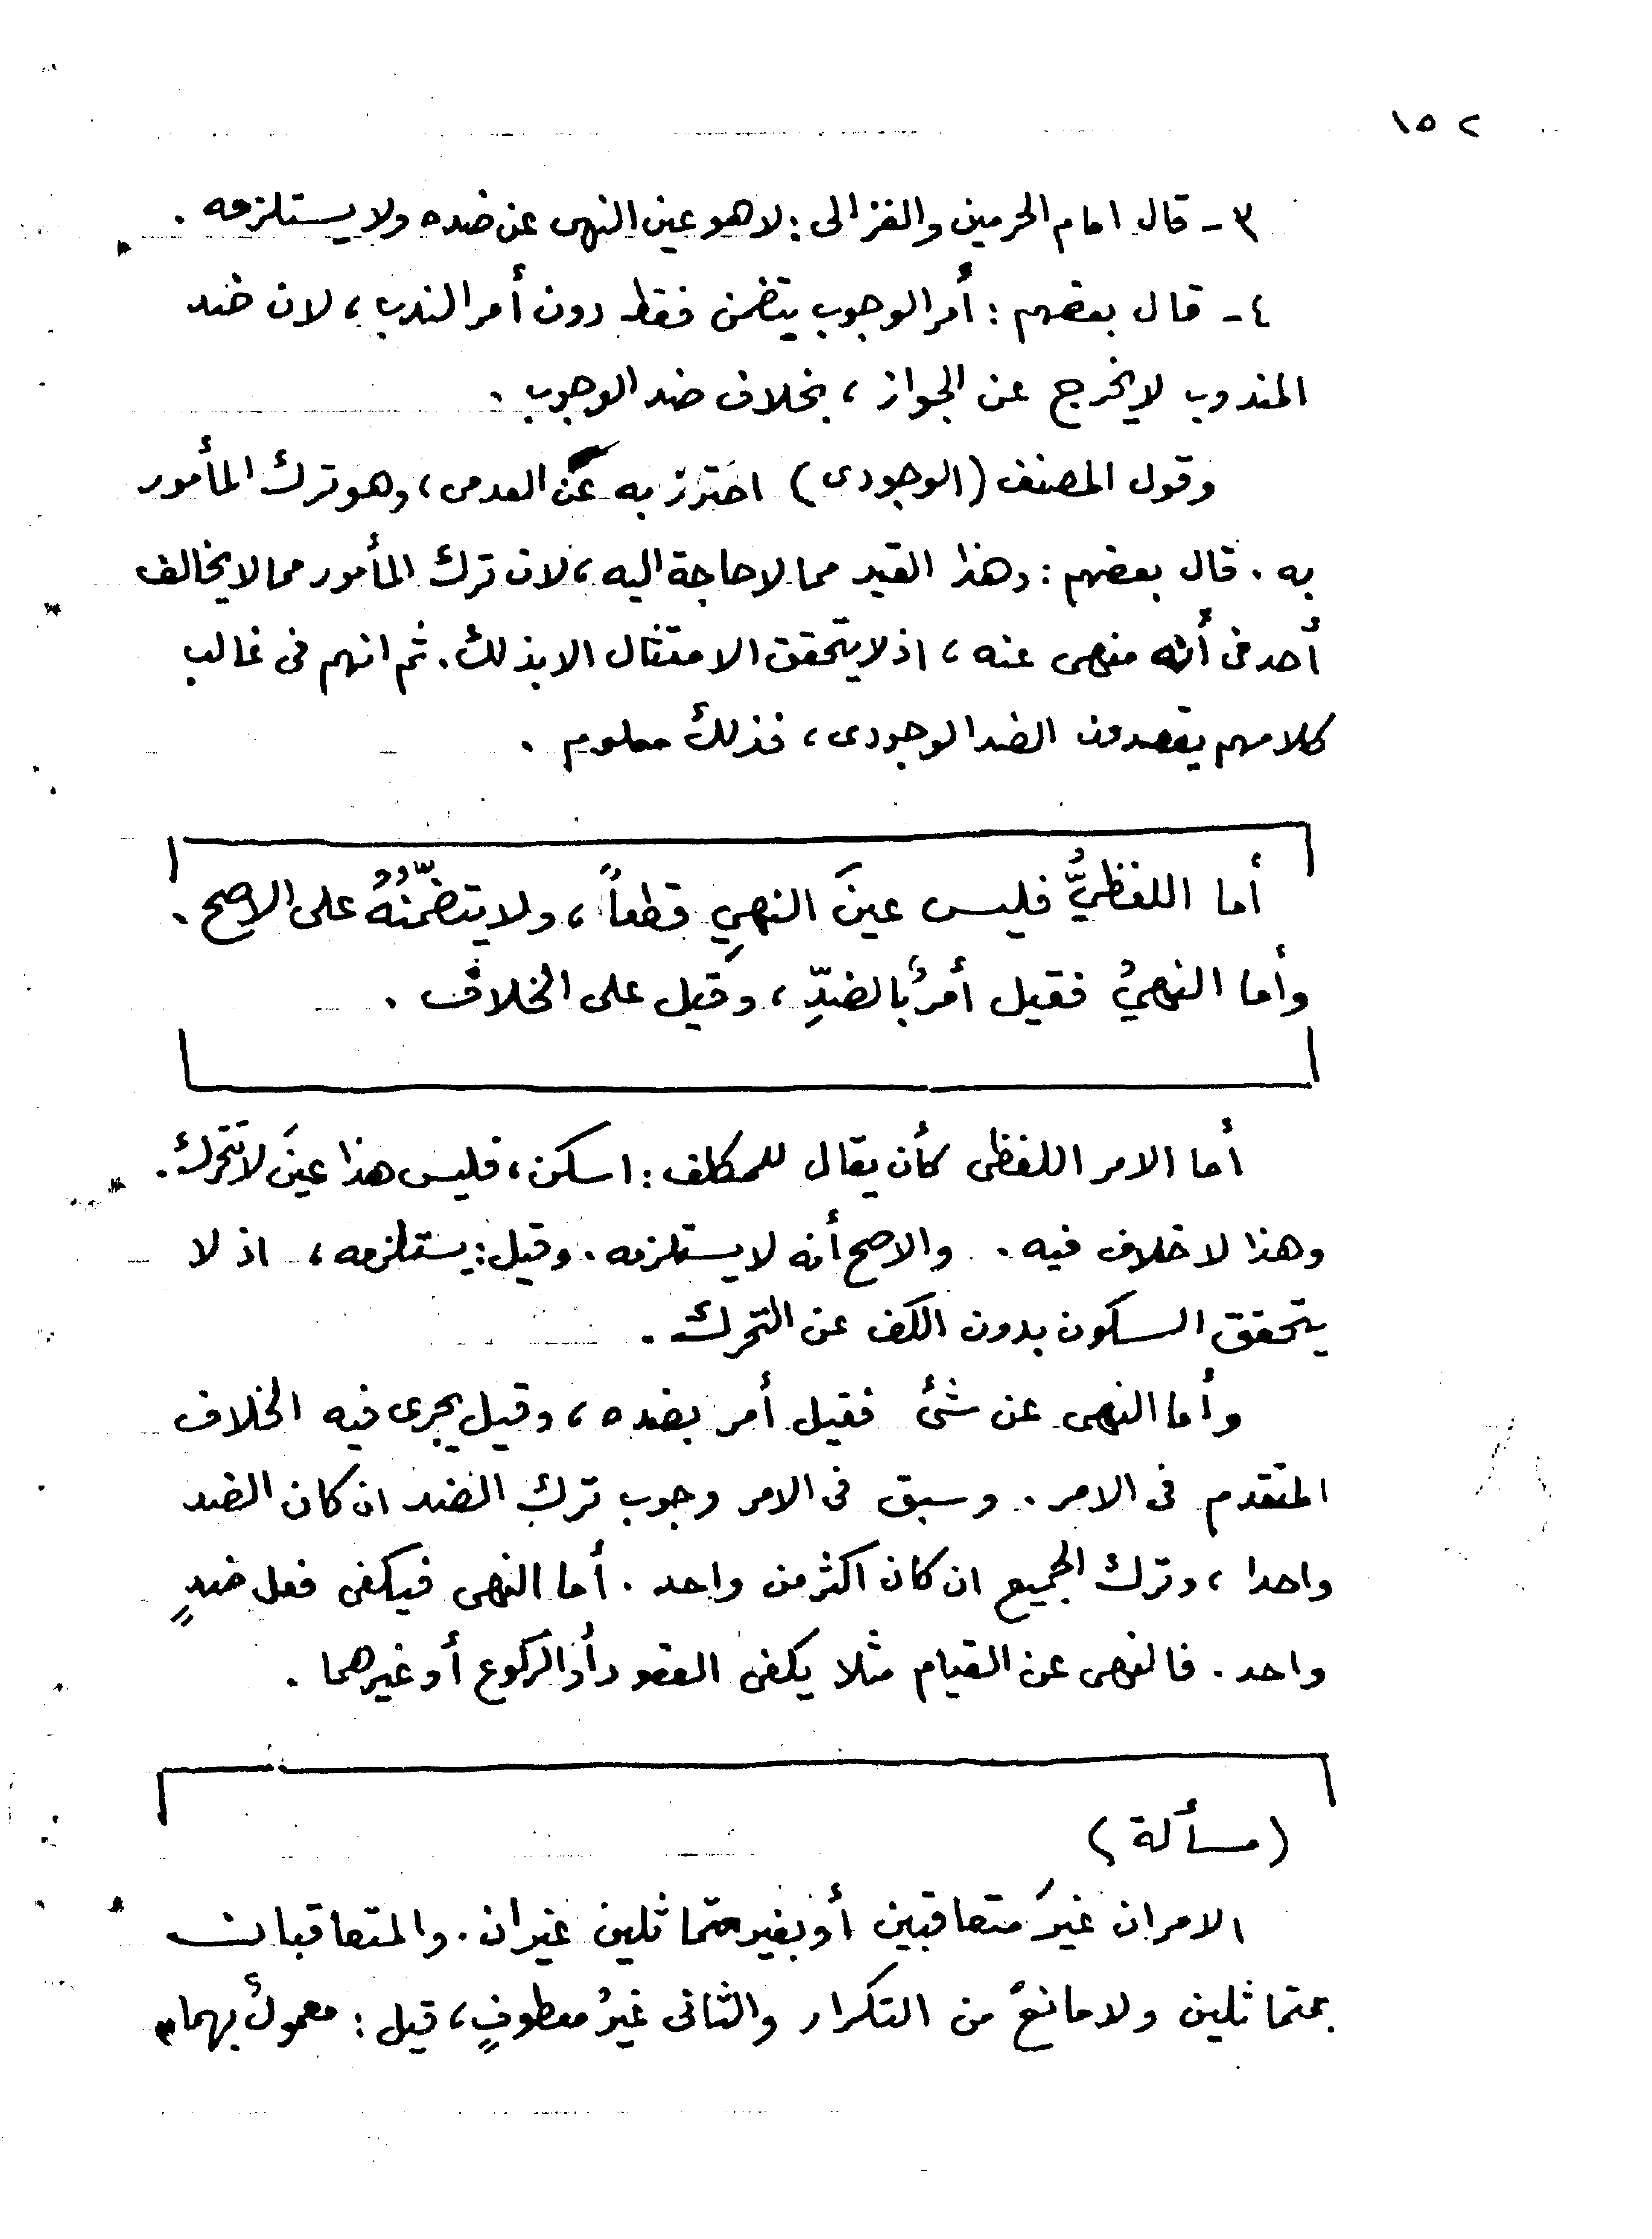 ١٥٢
٣ - قال امام الحرمين والغزالى : لا هو عين النهى عن ضده ولا يستلزمه .
٤ - قال بعضهم : أمر الوجوب يتضمن فقط دون أمر الندب ، لان ضد
المندوب لا يخرج عن الجواز ، بخلاف ضد الوجوب .
وقول المصنف (الوجودى) احترز به عن العدمى ، وهو ترك المأمور
به . قال بعضهم : وهذا القيد مما لا حاجة اليه ، لان ترك المأمور مما لا يخالف
أحد فى أنه منهى عنه ، اذ لا يتحقق الامتثال الا بذلك . ثم انهم فى غالب
كلامهم يقصدون الضد الوجودى ، فذلك معلوم .
أما اللفظيُّ فليس عينَ النهيِ قطعاً ، ولا يتضمّنُهُ على الاصح .
وأما النهيُ فقيل أمرٌ بالضدِّ ، وقيل على الخلاف .
أما الامر اللفظى كأن يقال للمكلف : اسكن ، فليس هذا عينَ لا تتحرك .
وهذا لا خلاف فيه . والاصح أنه لا يستلزمه . وقيل : يستلزمه ، اذ لا
يتحقق السكون بدون الكف عن التحرك .
وأما النهى عن شئ فقيل أمر بضده ، وقيل يجرى فيه الخلاف
المتقدم فى الامر . وسبق فى الامر وجوب ترك الضد ان كان الضد
واحدا ، وترك الجميع ان كان اكثر من واحد . أما النهى فيكفى فعل ضدٍ
واحد . فالنهى عن القيام مثلا يكفى القعود أو الركوع أو غيرهما .
(مسألة)
الامران غيرَ متعاقبين أو بغير متماثلين غيران . والمتعاقبان
بمتماثلين ولا مانعَ من التكرار والثانى غيرُ معطوفٍ ، قيل : معمولٌ بهما